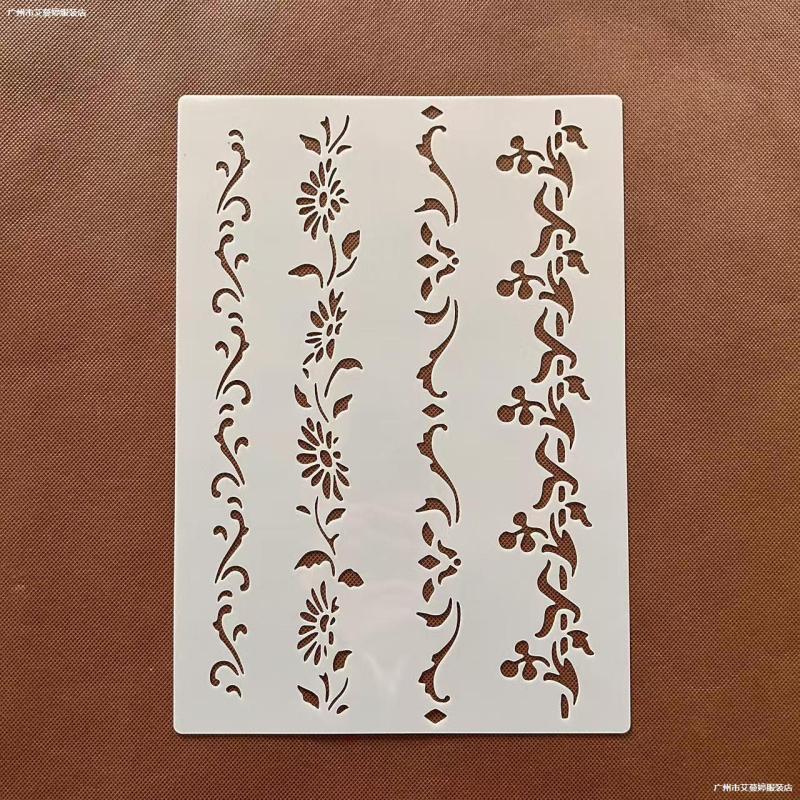 广州市艾蔓婷服装店
广州市艾蔓婷服装店